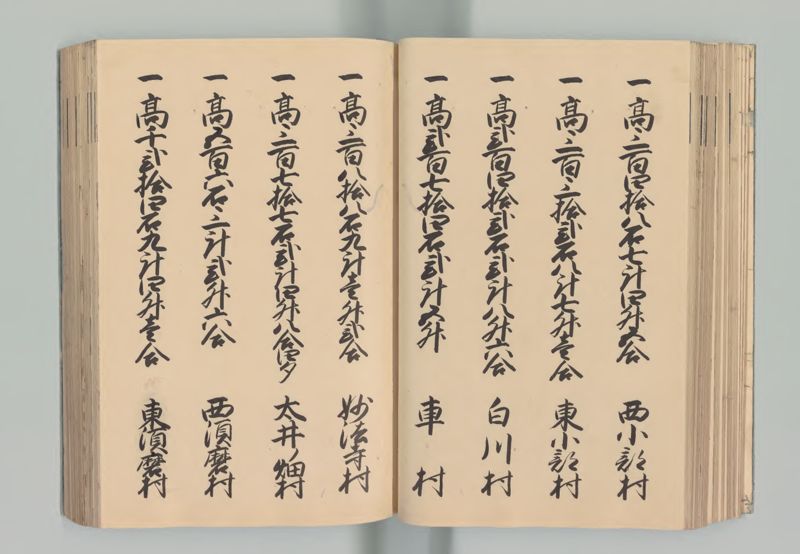 一高三百四拾八石七斗四升五合 西小部村
一高三百三拾弐石八斗七升壱合 東小部村
一高弐百四拾弐石弐斗八升六合 白川村
一高弐百七拾四石弐斗五升 車村
一高三百八拾八石九斗壱升弐合 妙法寺村
一高三百七拾七石弐斗四升八合四夕 太井ノ畑村
一高五百六石三斗弐升六合 西須磨村
一高千弐拾四石九斗四升壱合 東須磨村